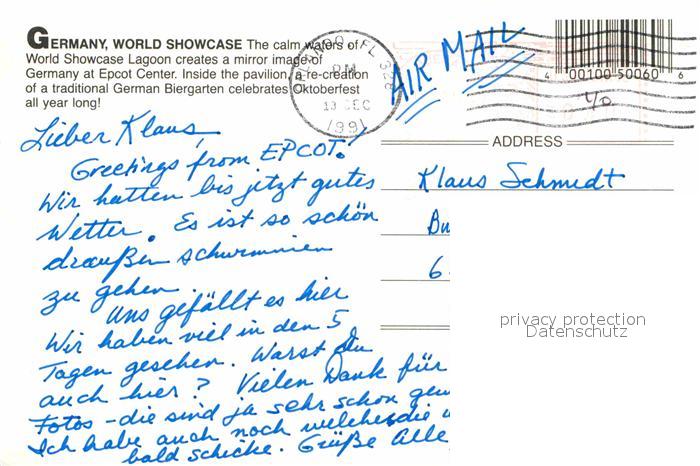 GERMANY, WORLD SHOWCASE The calm waters of
World Showcase Lagoon creates a mirror image of
Germany at Epcot Center. Inside the pavilion, a re-creation
of a traditional German Biergarten celebrates Oktoberfest
all year long!
ORLANDO, FL 328
PM
13 DEC
1991
AIR MAIL
4 00100 50060 6
Lieber Klaus,
Greetings from EPCOT!
Wir hatten bis jetzt gutes
Wetter. Es ist so schön
draußen schwimmen
zu gehen.
Uns gefällt es hier
Wir haben viel in den 5
Tagen gesehen. Warst Du
auch hier? Vielen Dank für
Fotos - die sind ja sehr schon
Ich habe auch noch welche die
bald schicke. Grüße Alle
ADDRESS
Klaus Schmidt
Bu
6
privacy protection
Datenschutz